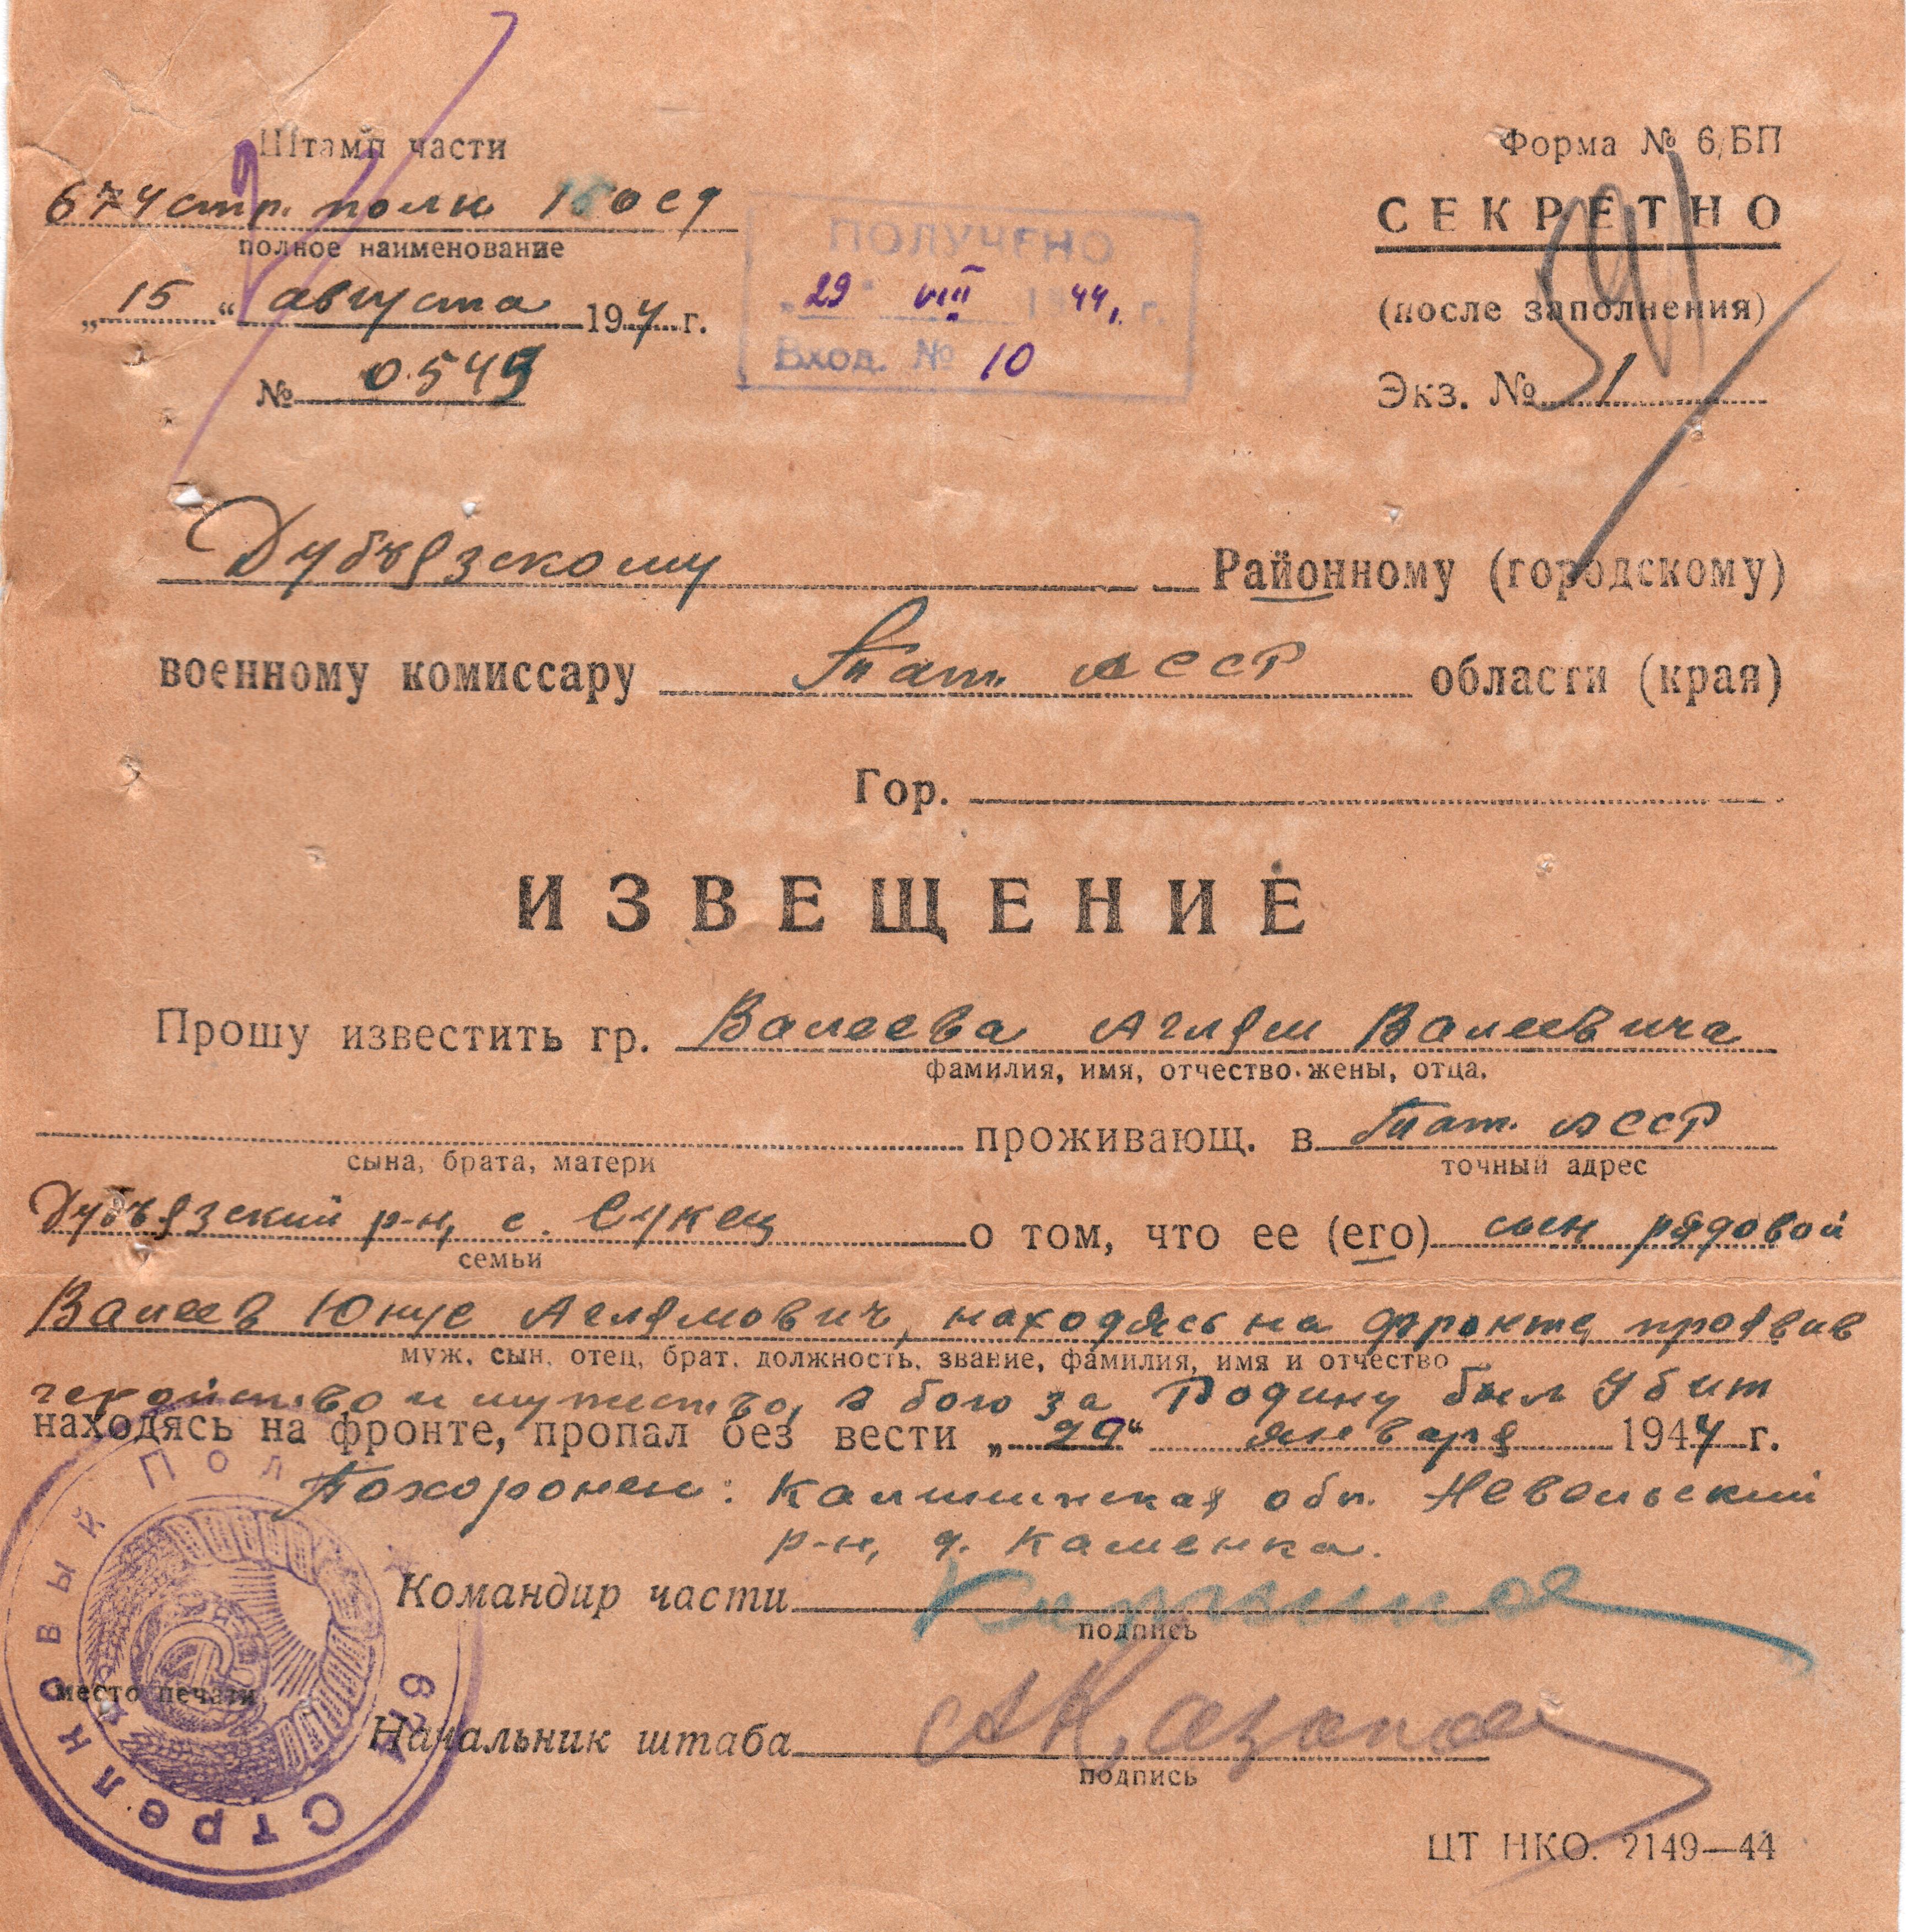 Штамп части
Форма № 6/БП
674 стр. полк 150 сд
СЕКРЕТНО
полное наименование
ПОЛУЧЕНО
„15“ августа 194 4 г.
„29“ VIII 1 44 г.
(после заполнения)
№ 0.549
Вход. № 10
Экз. № 1
Дубъязскому Районному (городскому)
военному комиссару Тат. АССР области (края)
Гор.
ИЗВЕЩЕНИЕ
Прошу известить гр. Валеева Аглям Валеевича
фамилия, имя, отчество жены, отца,
проживающ. в Тат. АССР
сына, брата, матери точный адрес
Дубъязский р-н, с. о том, что ее (его) сын рядовой
семьи
Валеев Юнус Аглямович, находясь на фронте, проявив
муж, сын, отец, брат, должность, звание, фамилия, имя и отчество
геройство и мужество, в бою за Родину был убит
находясь на фронте, пропал без вести „29“ января 1944 г.
Похоронен: Калининская обл. Невельский
р-н, д. Каменка.
Командир части
подпись
место печати
Начальник штаба
подпись
674 Стрелковый Полк
ЦТ НКО. 2149—44